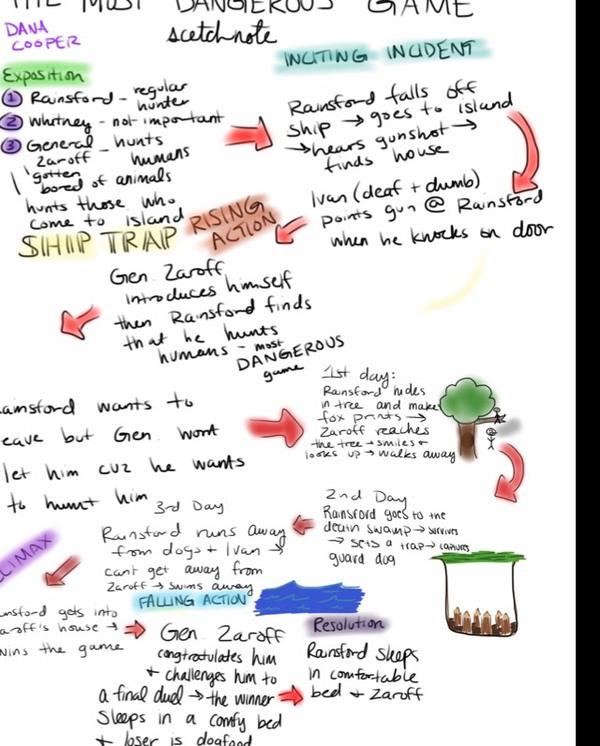 THE MOST DANGEROUS GAME
DANA
COOPER
scetchnote
Exposition
1 Rainsford - regular
hunter
2 Whitney - not important
3 General - hunts
Zaroff humans
gotten
bored of animals
hunts those who
come to island
SHIP TRAP
INCITING INCIDENT
Rainsford falls off
ship → goes to island
→ hears gunshot →
finds house
Ivan (deaf + dumb)
points gun @ Rainsford
when he knocks on door
RISING
ACTION
Gen. Zaroff
introduces himself
then Rainsford finds
that he hunts
humans - most
DANGEROUS
game
ainsford wants to
eave but Gen. wont
let him cuz he wants
to hunt him
1st day:
Rainsford hides
in tree and make
fox prints →
Zaroff reaches
the tree → smiles +
looks up → walks away
2nd Day
Rainsford goes to the
death swamp → survives
→ sets a trap → captures
guard dog
3rd Day
Rainsford runs away
from dogs + Ivan →
cant get away from
Zaroff → swims away
CLIMAX
insford gets into
aroff's house →
wins the game
FALLING ACTION
Gen. Zaroff
congtratulates him
+ challenges him to
a final duel → the winner
sleeps in a comfy bed
+ loser is dogfood
Resolution
Rainsford sleeps
in comfortable
bed + Zaroff